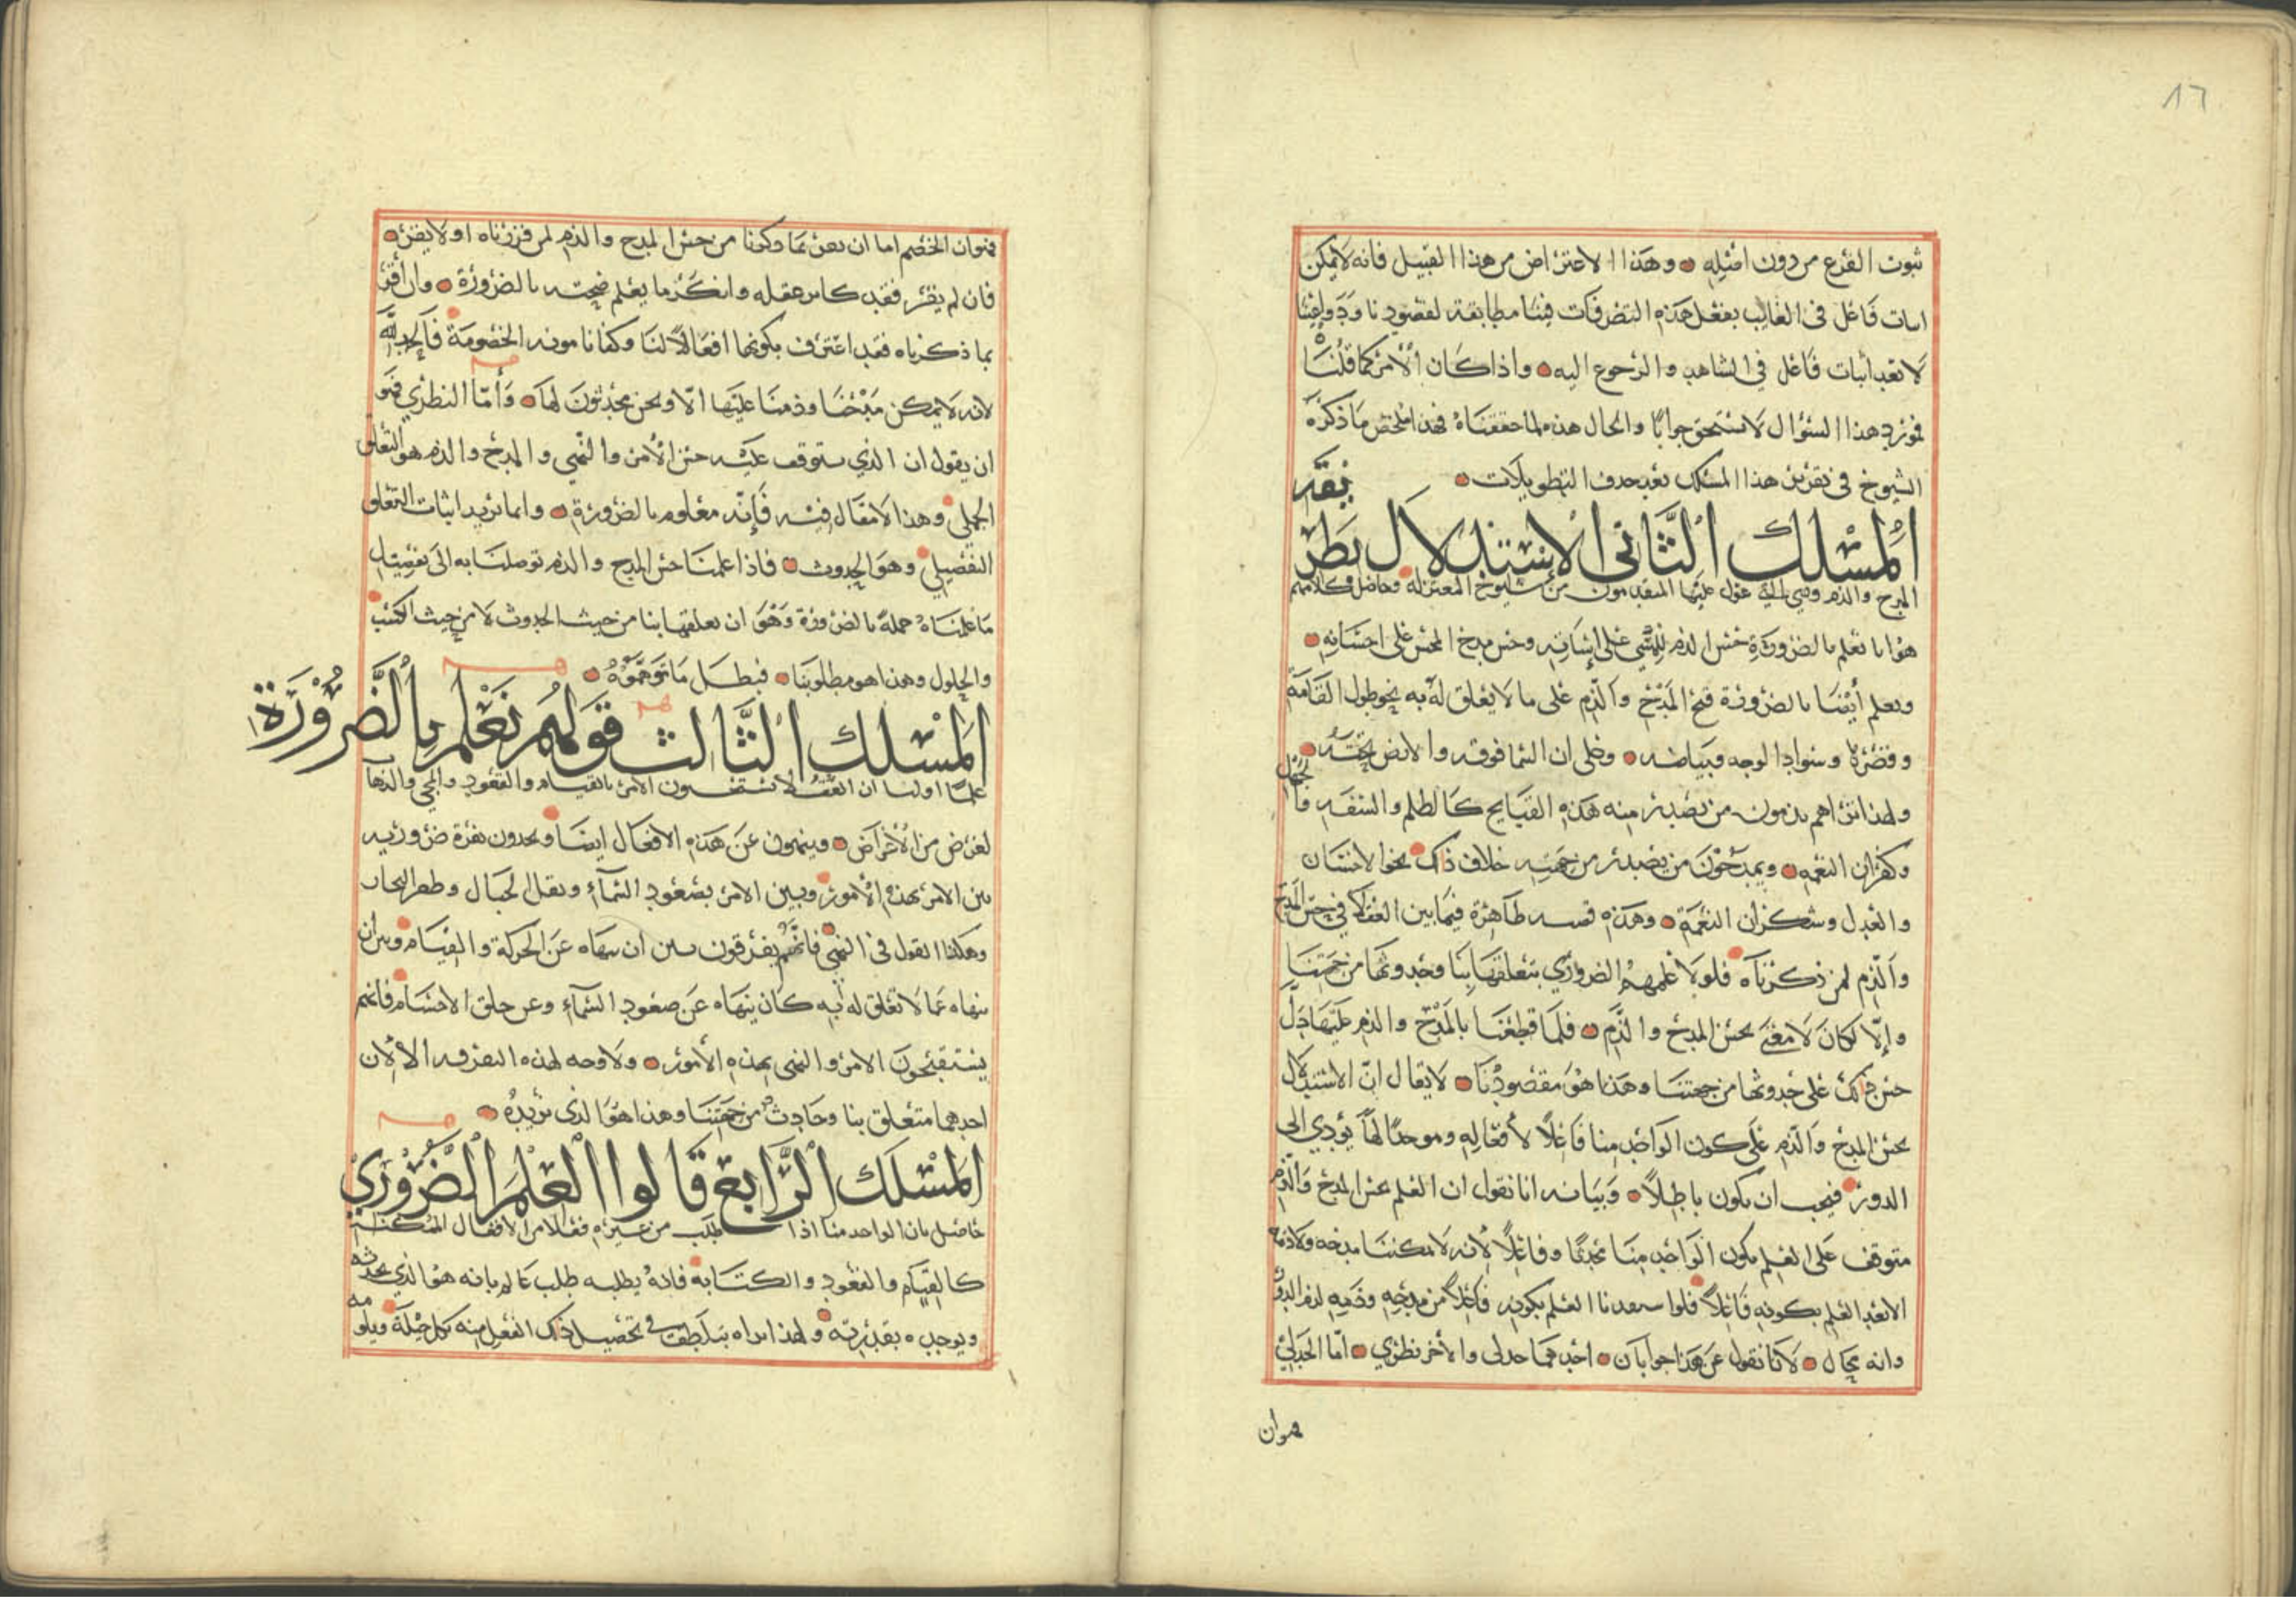 ١٦
ثبوت الفرع من دون اصله وهذا الاعتراض من هذا القبيل فانه لا يمكن
اثبات فاعل في الغايب بفعل هذه التصرفات فينا مطابقة لقصودنا ودواعينا
لا بعد اثبات فاعل في الشاهد والرجوع اليه واذا كان الأمر كما قلنا
فمورد هذا السؤال لا يستحق جوابا والحال هذه لما حققناه فهذا ملخص ما ذكره
الشيوخ في تقرير هذا المسلك بعد حذف التطويلات
المسلك الثاني الاستدلال بطريقة
المدح والذم وهي التي عول عليها المتقدمون من شيوخ المعتزلة وحاصل كلامهم
هو انا نعلم بالضرورة حسن الذم للمسي على اساته وحسن مدح المحسن على احسانه
ونعلم أيضا بالضرورة قبح المدح والذم على ما لا يعلق له به نحو طول القامة
وقصرها وسواد الوجه وبياضه وعلى ان السما فوقه والارض تحته
ولهذا تراهم يذمون من تصدر منه هذه القبايح كالظلم والسفه والجهل
وكفران النعمه ويمدحون من يصدر من جهته خلاف ذلك نحو الاحسان
والعدل وشكران النعمة وهذه قسمه ظاهرة فيما بين العقلا في حسن المدح
والذم لمن ذكرناه فلولا علمهم الضروري بتعلقها بنا وحدوثها من جهتنا
وإلا لكان لا معنى لحسن المدح والذم فلما قطعنا بالمدح والذم عليها دل
حسن ذلك على حدوثها من جهتنا وهذا هو مقصودنا لا يقال ان الاستدلال
بحسن المدح والذم على كون الواحد منا فاعلا لأفعاله وموجدا لها يؤدي الى
الدور فيجب ان يكون باطلا وبيانه انا نقول ان العلم بحسن المدح والذم
متوقف على العلم بكون الواحد منا محدثا وفاعلا لأنه لا يمكننا مدحه ولا ذمه
الا بعد العلم بكونه فاعلا فلو استفدنا العلم بكونه فاعلا من مدحه وذمه لزم الدور
وانه محال لانا نقول عن هذا جوابان احدهما جدلي والأخر نظري اما الجدلي
فهو ان
فهو ان الخصم اما ان يقر بما ذكرنا من حسن المدح والذم لمن قررناه او لا يقر
فان لم يقر فقد كابر عقله وانكر ما يعلم صحته بالضرورة وان أقر
بما ذكرناه فقد اعترف بكونها افعالا لنا وكفانا مونه الخصومة فالحمد لله
لانه لا يمكن مدحنا وذمنا عليها الا ونحن محدثون لها وأما النظري فهو
ان يقول ان الذي يتوقف عليه حسن الأمر والنهي والمدح والذم هو التعلق
الجملي وهذا لا مقال فيه فإنه معلوم بالضرورة وانما نريد اثبات التعلق
التفصيلي وهو الحدوث فاذا علمنا حسن المدح والذم توصلنا به الى تفصيل
ما علمناه جملة بالضرورة وهو ان تعلقها بنا من حيث الحدوث لا من حيث الكسب
والحلول وهذا هو مطلوبنا فبطل ما توهموه
المسلك الثالث قولهم نعلم بالضرورة
علما اوليا ان العقلا يستحسنون الامر بالقيام والقعود والمجي والذهاب
لغرض من الأغراض وينهون عن هذه الافعال ايضا ويجدون تفرقة ضروريه
بين الامر بهذه الأمور وبين الامر بصعود السماء ونقل الجبال وطم البحار
وهكذا القول في النهي فانهم يفرقون بين ان ينهاه عن الحركة والقيام وبين ان
ينهاه عما لا تعلق له به كان ينهاه عن صعود السماء وعن خلق الاجسام فانهم
يستقبحون الامر والنهي بهذه الأمور ولا وجه لهذه التفرقه الا لان
احدهما متعلق بنا وحادث من جهتنا وهذا هو الذي نريده
المسلك الرابع قالوا العلم الضروري
حاصل بان الواحد منا اذا طلب من غيره فعلا من الافعال الممكنة
كالقيام والقعود والكتابة فانه يطلبه طلب عالم بانه هو الذي يحدثه
ويوجده بقدرته ولهذا تراه يتلطف في تحصيل ذلك الفعل منه بكل حيلة ويلومه